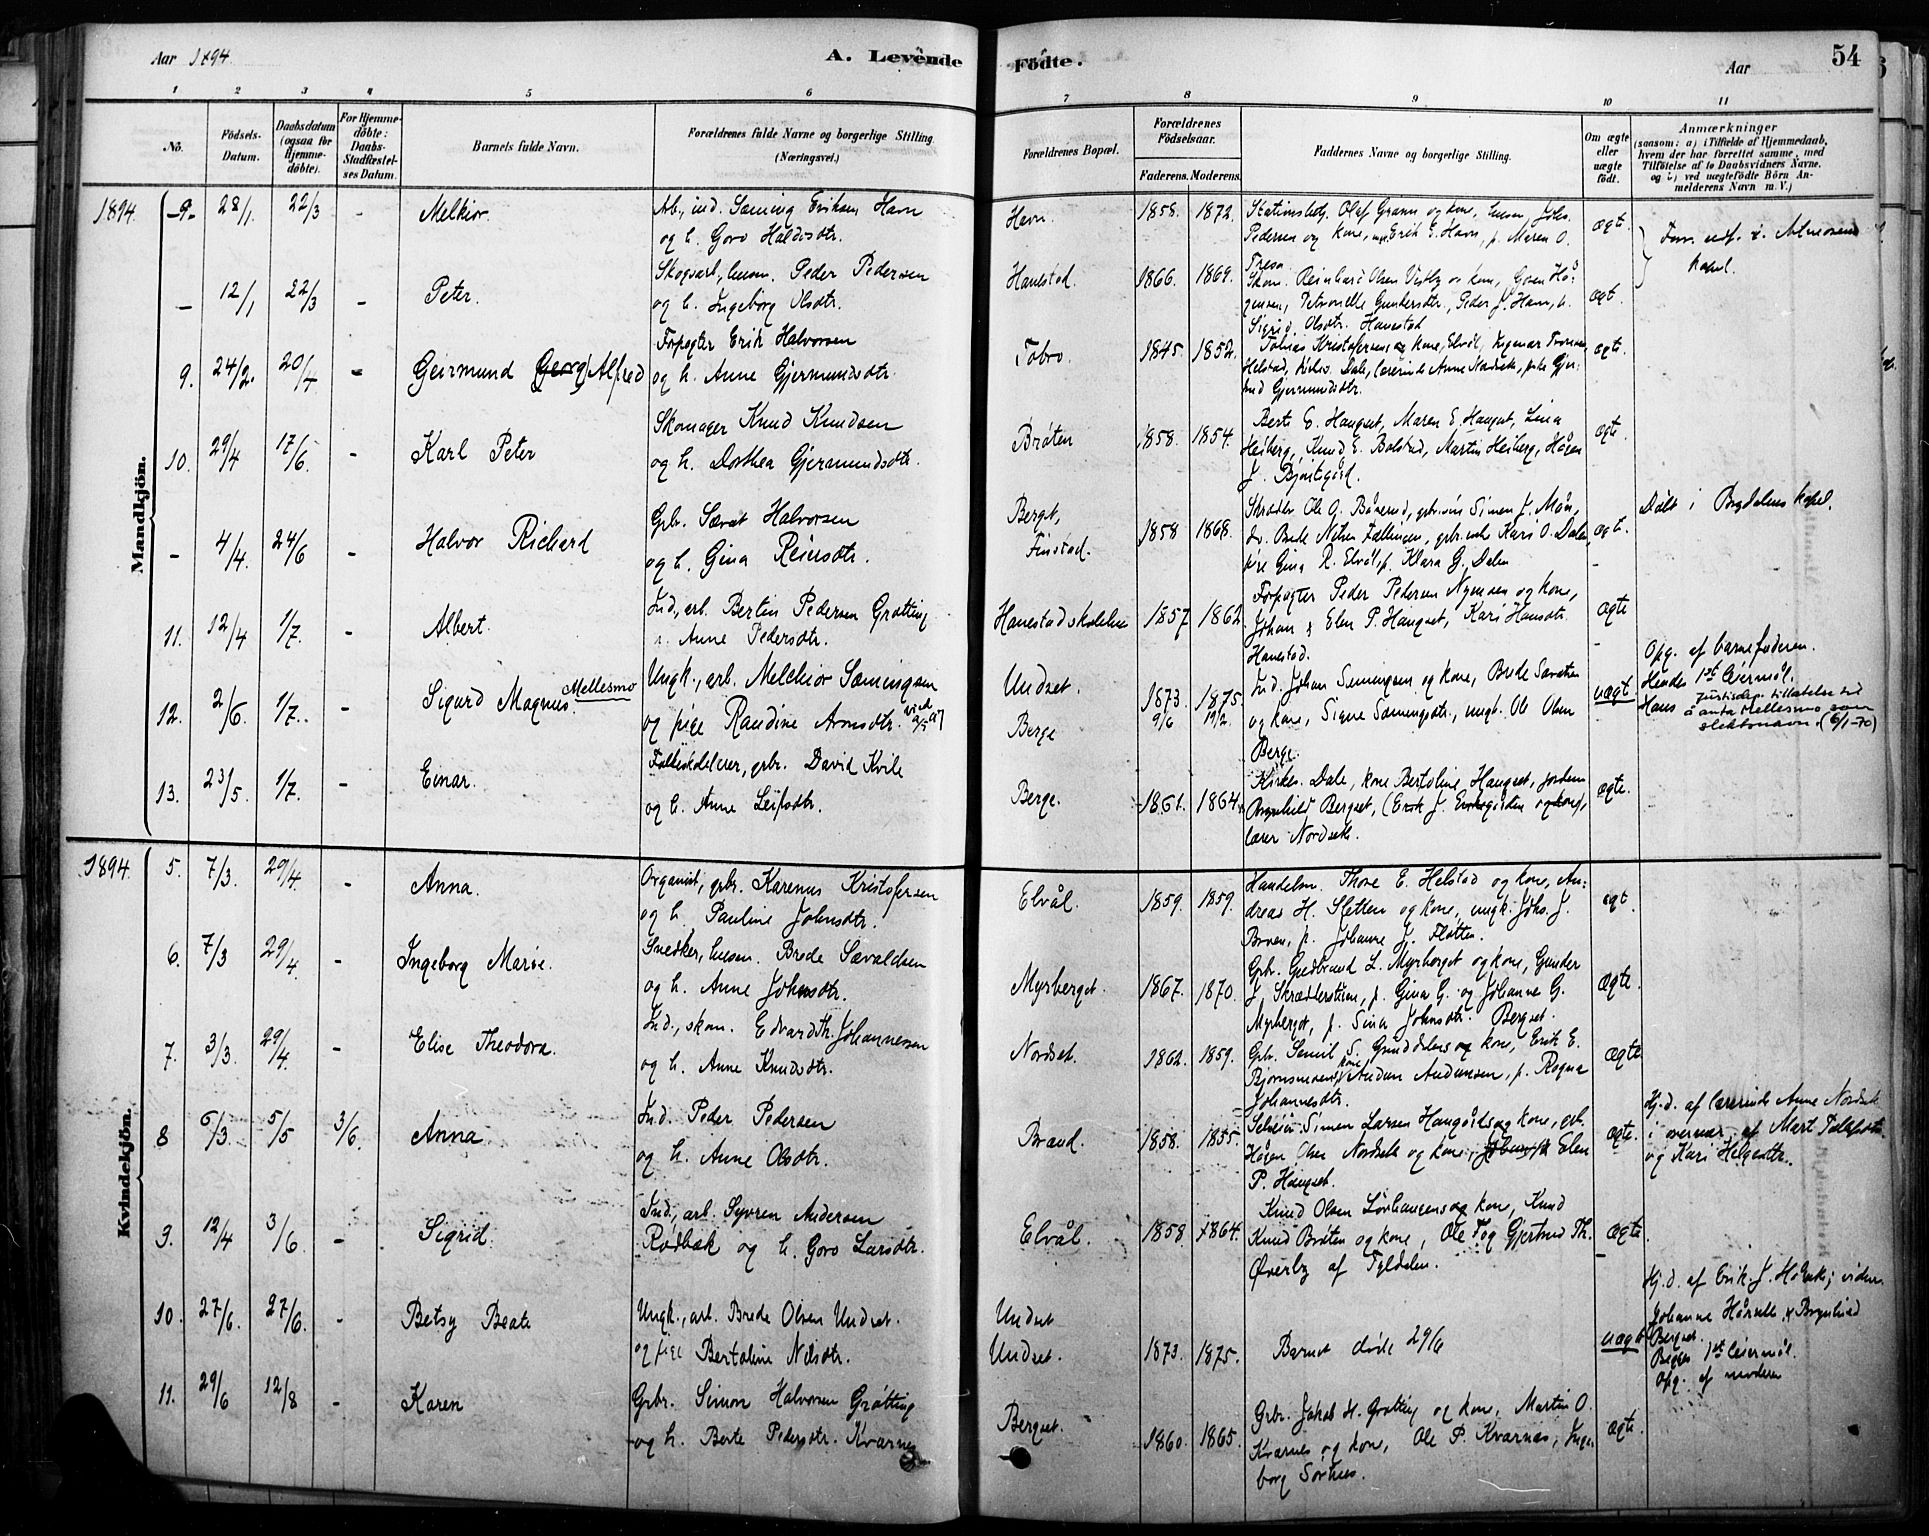 Aar 1894.
A. Levende Födte.
Aar
54
1 2 3 4 5 6 7 8 9 10 11
No.
Födsels-
Datum.
Daabsdatum
(ogsaa for
Hjemme-
döbte).
For Hjemme-
döbte:
Daabs-
Stadfæstel-
ses Datum.
Barnets fulde Navn.
Forældrenes fulde Navne og borgerlige Stilling
(Næringsvei.)
Forældrenes Bopæl.
Forældrenes
Födselsaar.
Faderens. Moderens.
Faddernes Navne og borgerlige Stilling.
Om ægte
eller
uægte
født.
Anmærkninger
(saasom: a) i Tilfælde af Hjemmedaab,
hvem der har forrettet samme, med
Tilföielse af to Daabsvidners Navne,
og b) ved uægtefödte Börn An-
melderens Navn m. V.)
Mandkjön.
1894 -9- 28/1. 22/3 - Melkior.
Arb., ind. Sæming Eriksen Havn
og h. Goro Haldosdtr.
Havn. 1858. 1872.
Olaf Gramm og kone, Johs.
Pedersen og kone, Erik E. Havn, p. Maren O.
Tresa
ægte.
kapel.
- 12/1 22/3 - Peter.
Skogvakt., husm. Peder Pedersen
og h. Ingeborg Olsdtr.
Hanestad. 1866. 1869.
Reinhard Olsen Vestby og kone,
Petronelle Gundersdtr., Peder J. Havn,
Sigrid Olsdtr. Hanestad
ægt.
9. 24/2. 20/4 - Geirmund Georg Alfred
Forpagter Erik Halvorsen
og h. Anne Gjermundsdtr.
Tobro. 1845. 1852.
Tobias Kristofersen og kone, Elvål, Ingvar
Helstad, Kirkes. Dale, lærerinde Anne Nordsek, pike Gjer-
trud Gjermundsdtr.
ægte.
10. 29/4 17/6. - Karl Peter
Skomager Knud Knudsen
og h. Dorthea Gjermundsdtr.
Bröten 1858. 1854.
Berte E. Hangset, Maren E. Hangset, Lina
Heiberg, Knud E. Bolstad, Martin Heiberg, Hågen
J. Bjontegård.
ægte.
- 4/4. 24/6 - Halvor Richard
Gbr. Sævat Halvorsen
og h. Gina Reiersdtr.
Berget,
Finstad.
1858 1868.
Skrædder Ole G. Bårerud, Simen J. Møen,
Brede Nilsen Fællingen, Kari O. Dalen,
Gina R. Elvål, p. Klara G. Dalen
ægte.
Døbt i Brydalens kapel.
11. 12/4 1/7. - Albert.
Ind., arb. Bertin Pedersen Grøtting
Anne Pedersdtr.
Hanestad skolehus 1857 1862
Forpagter Peder Pedersen Nymoen og kone,
Johan & Elen P. Hangset, Kari Hansdtr.
Hanestad.
ægte
12. 2/6. 1/7. - Sigurd Magnus. Mellesmo
Ungk., arb. Melchior Sæmingsen
og pige Randine Arnesdtr.
Undset.
Berge
1873 1875.
9/6 19/2.
Ind. Johan Semingsen og kone, Brede Sivertsen
og kone, Signe Sæmingsdtr., ungk. Ole Olsen
Berge.
uægt
Opg. af barnefaderen.
Hendes 1ste leiermål.
Hans
Justisdep. tillatelse til
å anta Mellesmo som
slektsnavn. (6/1-70)
13. 23/5. 1/7. - Einar.
grbr. David Kvile
og h. Anne Leifsdtr.
Berge. 1861. 1864.
Kirkes. Dale, kone Bertoline Hangset, jordem
Brynhild Bergset, (Erik J. Enkegården og kone),
lærer Nordsek.
ægte.
Kvindekjön.
1894. 5. 7/3. 29/4. - Anna.
Organist, grbr. Karenus Kristofersen
og h. Pauline Johnsdtr.
Elvål. 1859. 1859.
Handelsm. Thore E. Helstad og kone, An-
dreas H. Sletten og kone, ungk. Johs. J.
Broen, p. Johanne J. Fløtten.
ægt.
6. 7/3 29/4. - Ingeborg Marie.
Snedker, husm. Brede Sævaldsen
og h. Anne Johnsdtr.
Myrberget. 1867. 1870.
Grbr. Gudbrand L. Myrberget og kone, Gunder
J. Skrædderstuen, p. Gina G. og Johanne G.
Myrberget, p. Sina Johnsdtr. Bergset.
ægte.
7. 3/3. 29/4. - Elise Theodora.
Ind., skom. Edvard Th. Johannesen
og h. Anne Knudsdtr.
Nordset. 1862. 1859.
Grb. Semil S. Grunddalen og kone, Erik E.
Bjørnsmoen, kone Audun Audunsen, p. Ragna
Johannesdtr.
ægte
8 6/3. 5/5 3/6 Anna
Ind. Peder Pedersen
og h. Anne Olsdtr.
Brænd. 1858. 1855.
Selveier Simen Larsen Hangård og kone, gbr.
Hågen Olsen Nordsek og kone, Elen
P. Hangset.
ægte.
Hj.d. af lærerinde Anne Nordsek
i overvær af Mart
og Kari Helgesdtr.
9. 12/4 3/6. - Sigrid.
Ind., arb. Syvren Andersen
Rødbæk og h. Goro Larsdtr.
Elvål. 1858 1864.
Knud Olsen Løvhaugen og kone, Knud
Knud Bråten og kone, Ole T. og Gjertrud Th.
Øverby af Tyldalen.
ægte
10. 27/6. 27/6. - Betsy Beate
Ungk., arb. Brede Olsen Undset.
og pige Bertoline Nilsdtr.
Undset
Undset.
1873. 1875.
Barnet døde 29/6
uægt
Hj.d. af Erik J. vidner
Johanne & Brynhild
Bergset.
Begges 1ste leiermål.
Opg. af moderen
11. 29/6 12/8 - Karen
Grbr. Simon Halvorsen Grøtting
og h. Berte Pedersdtr. Kvarnes
Bergset. 1860. 1865.
Grbr. Jakob H. Grøtting og kone, Martin O.
Kvarnes og kone, Ole P. Kvarnes, Inge-
borg Sørhus.
ægte.